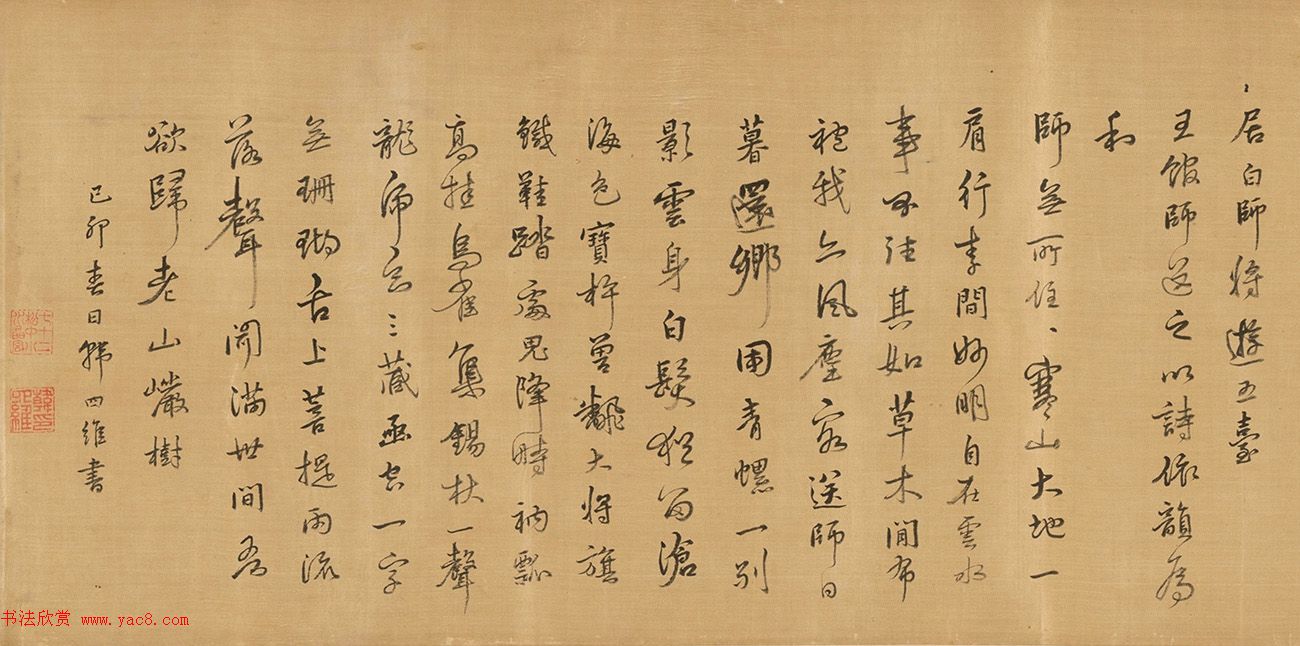 居白師將遊五臺
王師送之以詩依韻為
和
師無所住、寒山大地一
肩行李間妙明自在雲水
事不住其如草木間布
袍我亦風塵客送師日
暮還鄉用青螺一別
影雲身白髮猶留滄
海色寶杵曾齾大將旗
鐵鞋踏處鬼降時衲瓢
高挂烏雀集錫杖一聲
龍虎三藏亟言一字
無珊瑚舌上菩提雨流
落聲聞滿世間
欲歸老山巖樹
己卯春日韓四維書
韓四維印
书法欣赏 www.yac8.com